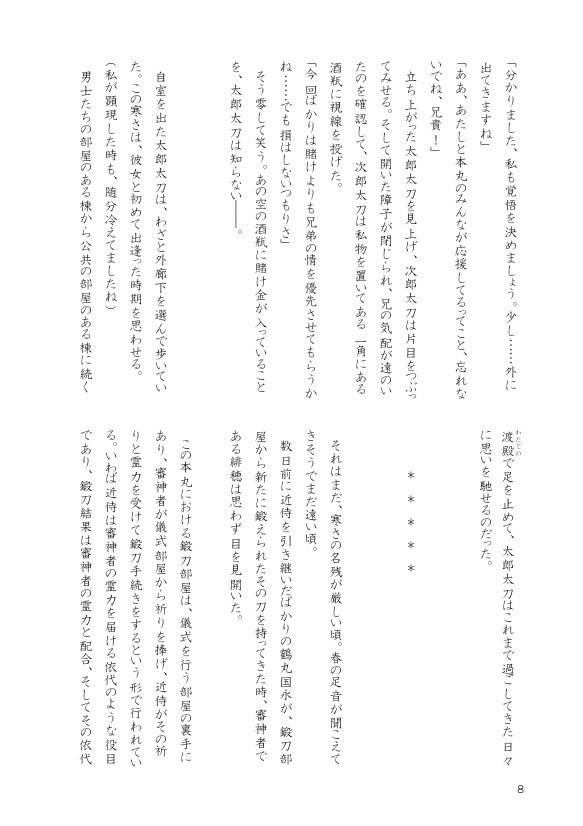 「分かりました、私も覚悟を決めましょう。少し……外に
出てきますね」
「ああ、あたしと本丸のみんなが応援してるってこと、忘れな
いでね、兄貴！」
立ち上がった太郎太刀を見上げ、次郎太刀は片目をつぶっ
てみせる。そして開いた障子が閉じられ、兄の気配が遠のい
たのを確認して、次郎太刀は私物を置いてある一角にある
酒瓶に視線を投げた。
「今回ばかりは賭けよりも兄弟の情を優先させてもらうか
ね……でも損はしないつもりさ」
そう零して笑う。あの空の酒瓶に賭け金が入っていること
を、太郎太刀は知らない――。
自室を出た太郎太刀は、わざと外廊下を選んで歩いてい
た。この寒さは、彼女と初めて出逢った時期を思わせる。
（私が顕現した時も、随分冷えてましたね）
男士たちの部屋のある棟から公共の部屋のある棟に続く
渡殿で足を止めて、太郎太刀はこれまで過ごしてきた日々
わたどの
に思いを馳せるのだった。
＊　＊　＊　＊　＊
それはまだ、寒さの名残が厳しい頃。春の足音が聞こえて
きそうでまだ遠い頃。
数日前に近侍を引き継いだばかりの鶴丸国永が、鍛刀部
屋から新たに鍛えられたその刀を持ってきた時、審神者で
ある緋穂は思わず目を見開いた。
この本丸における鍛刀部屋は、儀式を行う部屋の裏手に
あり、審神者が儀式部屋から祈りを捧げ、近侍がその祈
りと霊力を受けて鍛刀手続きをするという形で行われてい
る。いわば近侍は審神者の霊力を届ける依代のような役目
であり、鍛刀結果は審神者の霊力と配合、そしてその依代
8